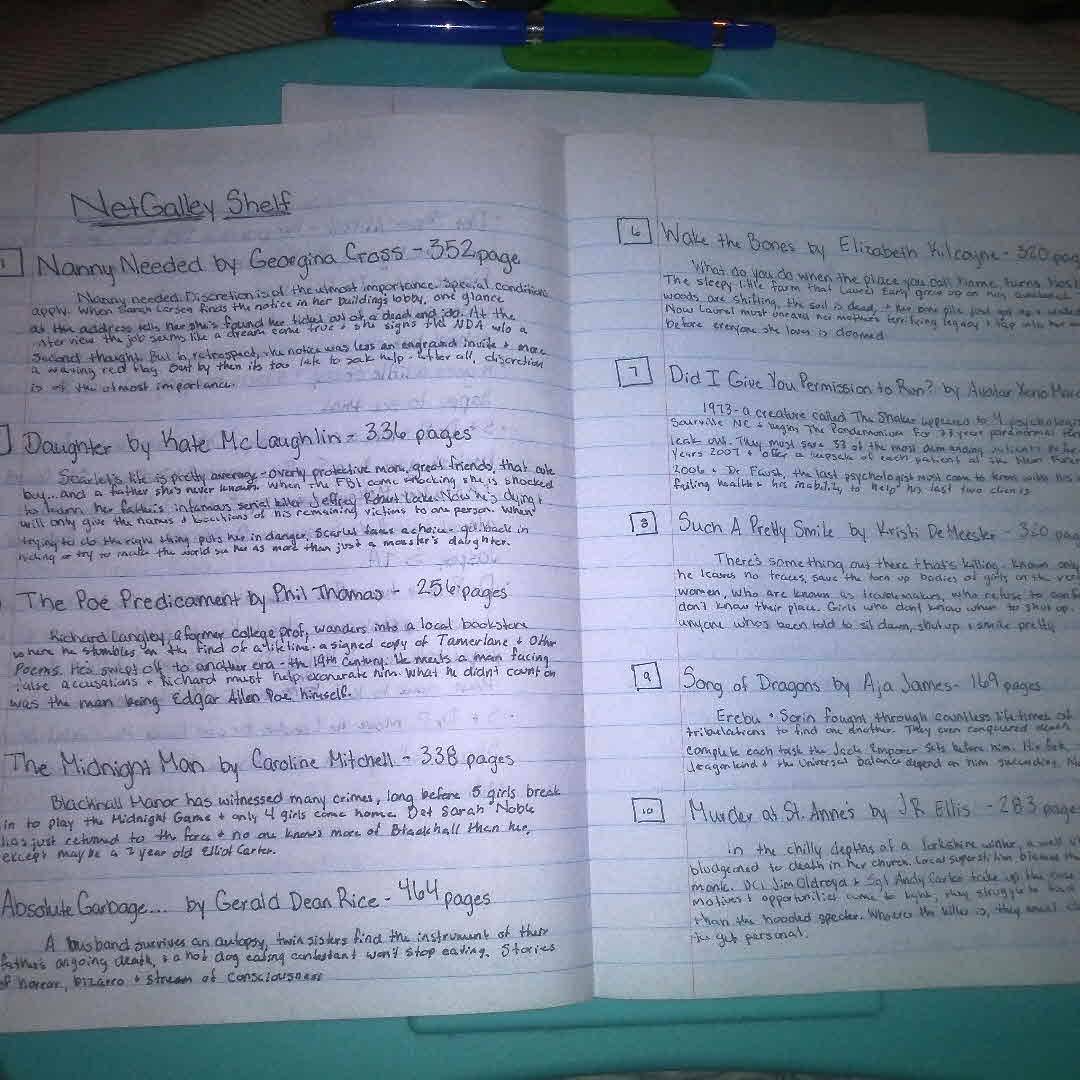 NetGalley Shelf
1 Nanny Needed by Georgina Cross - 352 page
Nanny needed. Discretion is of the utmost importance. Special condition
apply. When Sarah Larsen finds the notice in her building's lobby, one glance
at the address tells her she's found her ticket out of a dead end job. At the
nterview the job seems like a dream come true + she signs the NDA w/o a
second thought. But in retrospect, the notice was less an engraved invite + more
a waving red flag. But by then it's too late to seek help - after all, discretion
is of the utmost importance.
Daughter by Kate McLaughlin - 336 pages
Scarlet's life is pretty average - overly protective mom, great friends, that cute
boy... and a father she's never known. When the FBI come knocking she is shocked
to learn her father's infamous serial killer Jeffrey Robert Lake. Now he's dying +
will only give the names + locations of his remaining victims to one person. When
trying to do the right thing puts her in danger, Scarlet faces a choice - go back in
hiding or try to make the world see her as more than just a monster's daughter.
The Poe Predicament by Phil Thomas - 256 pages
Richard Langley, a former college prof, wanders into a local bookstore
where he stumbles on the find of a lifetime - a signed copy of Tamerlane + Other
Poems. He's swept off to another era - the 19th century. He meets a man facing
false accusations + Richard must help exonerate him. What he didn't count on
was the man being Edgar Allen Poe himself.
The Midnight Man by Caroline Mitchell - 338 pages
Blackhall Manor has witnessed many crimes, long before 5 girls break
in to play the Midnight Game + only 4 girls come home. Det Sarah Noble
has just returned to the force + no one knows more of Blackhall than her,
except maybe a 7 year old Elliot Carter.
Absolute Garbage... by Gerald Dean Rice - 464 pages
A husband survives an autopsy, twin sisters find the instrument of their
father's ongoing death, + a hot dog eating contestant won't stop eating. Stories
of horror, bizarro + stream of consciousness
6 Wake the Bones by Elizabeth Kilcoyne - 320 pag
What do you do when the place you call home turns
The sleepy little farm that Laurel Early grew up on has awakened.
woods are shifting, the soil is dead, + her bone pile just got up + walked
Now Laurel must unravel her mother's terrifying legacy + tap into her
before everyone she loves is doomed
7 Did I Give You Permission to Run? by Avatar Xeno
1973 - a creature called The Shaker appeared to 4 psychologists
Saurville NC + begin The Pandemonium for 35 year paranormal
leak out. They must save 53 of the most demanding patients before
years 2007 + offer a capsule of each patient at the
2006 + Dr Faust, the last psychologist must come to terms with his
failing health + his inability to help his last two clients
8 Such A Pretty Smile by Kristi DeMeester - 320 pag
There's something out there that's killing. Known only
he leaves no traces, save the torn up bodies of girls on the verge
women, who are known as troublemakers, who refuse to conf
don't know their place. Girls who don't know when to shut up.
anyone who's been told to sit down, shut up + smile pretty
9 Song of Dragons by Aja James - 169 pages
Erebu + Sorin fought through countless lifetimes of
tribulations to find one another. They even conquered death
complete each task the Jade Emperor sets before him. His fate,
Dragonkind + the Universal balance depend on him succeeding.
10 Murder at St. Anne's by JR Ellis - 283 page
in the chilly depths of a Yorkshire winter, a well
bludgeoned to death in her church. Local superstition blames the
monk. DCI Jim Oldroyd + Sgt Andy Carter take up the case
motives + opportunities come to light, they struggle to
than the hooded specter. Whoever the killer is, they must
personal.